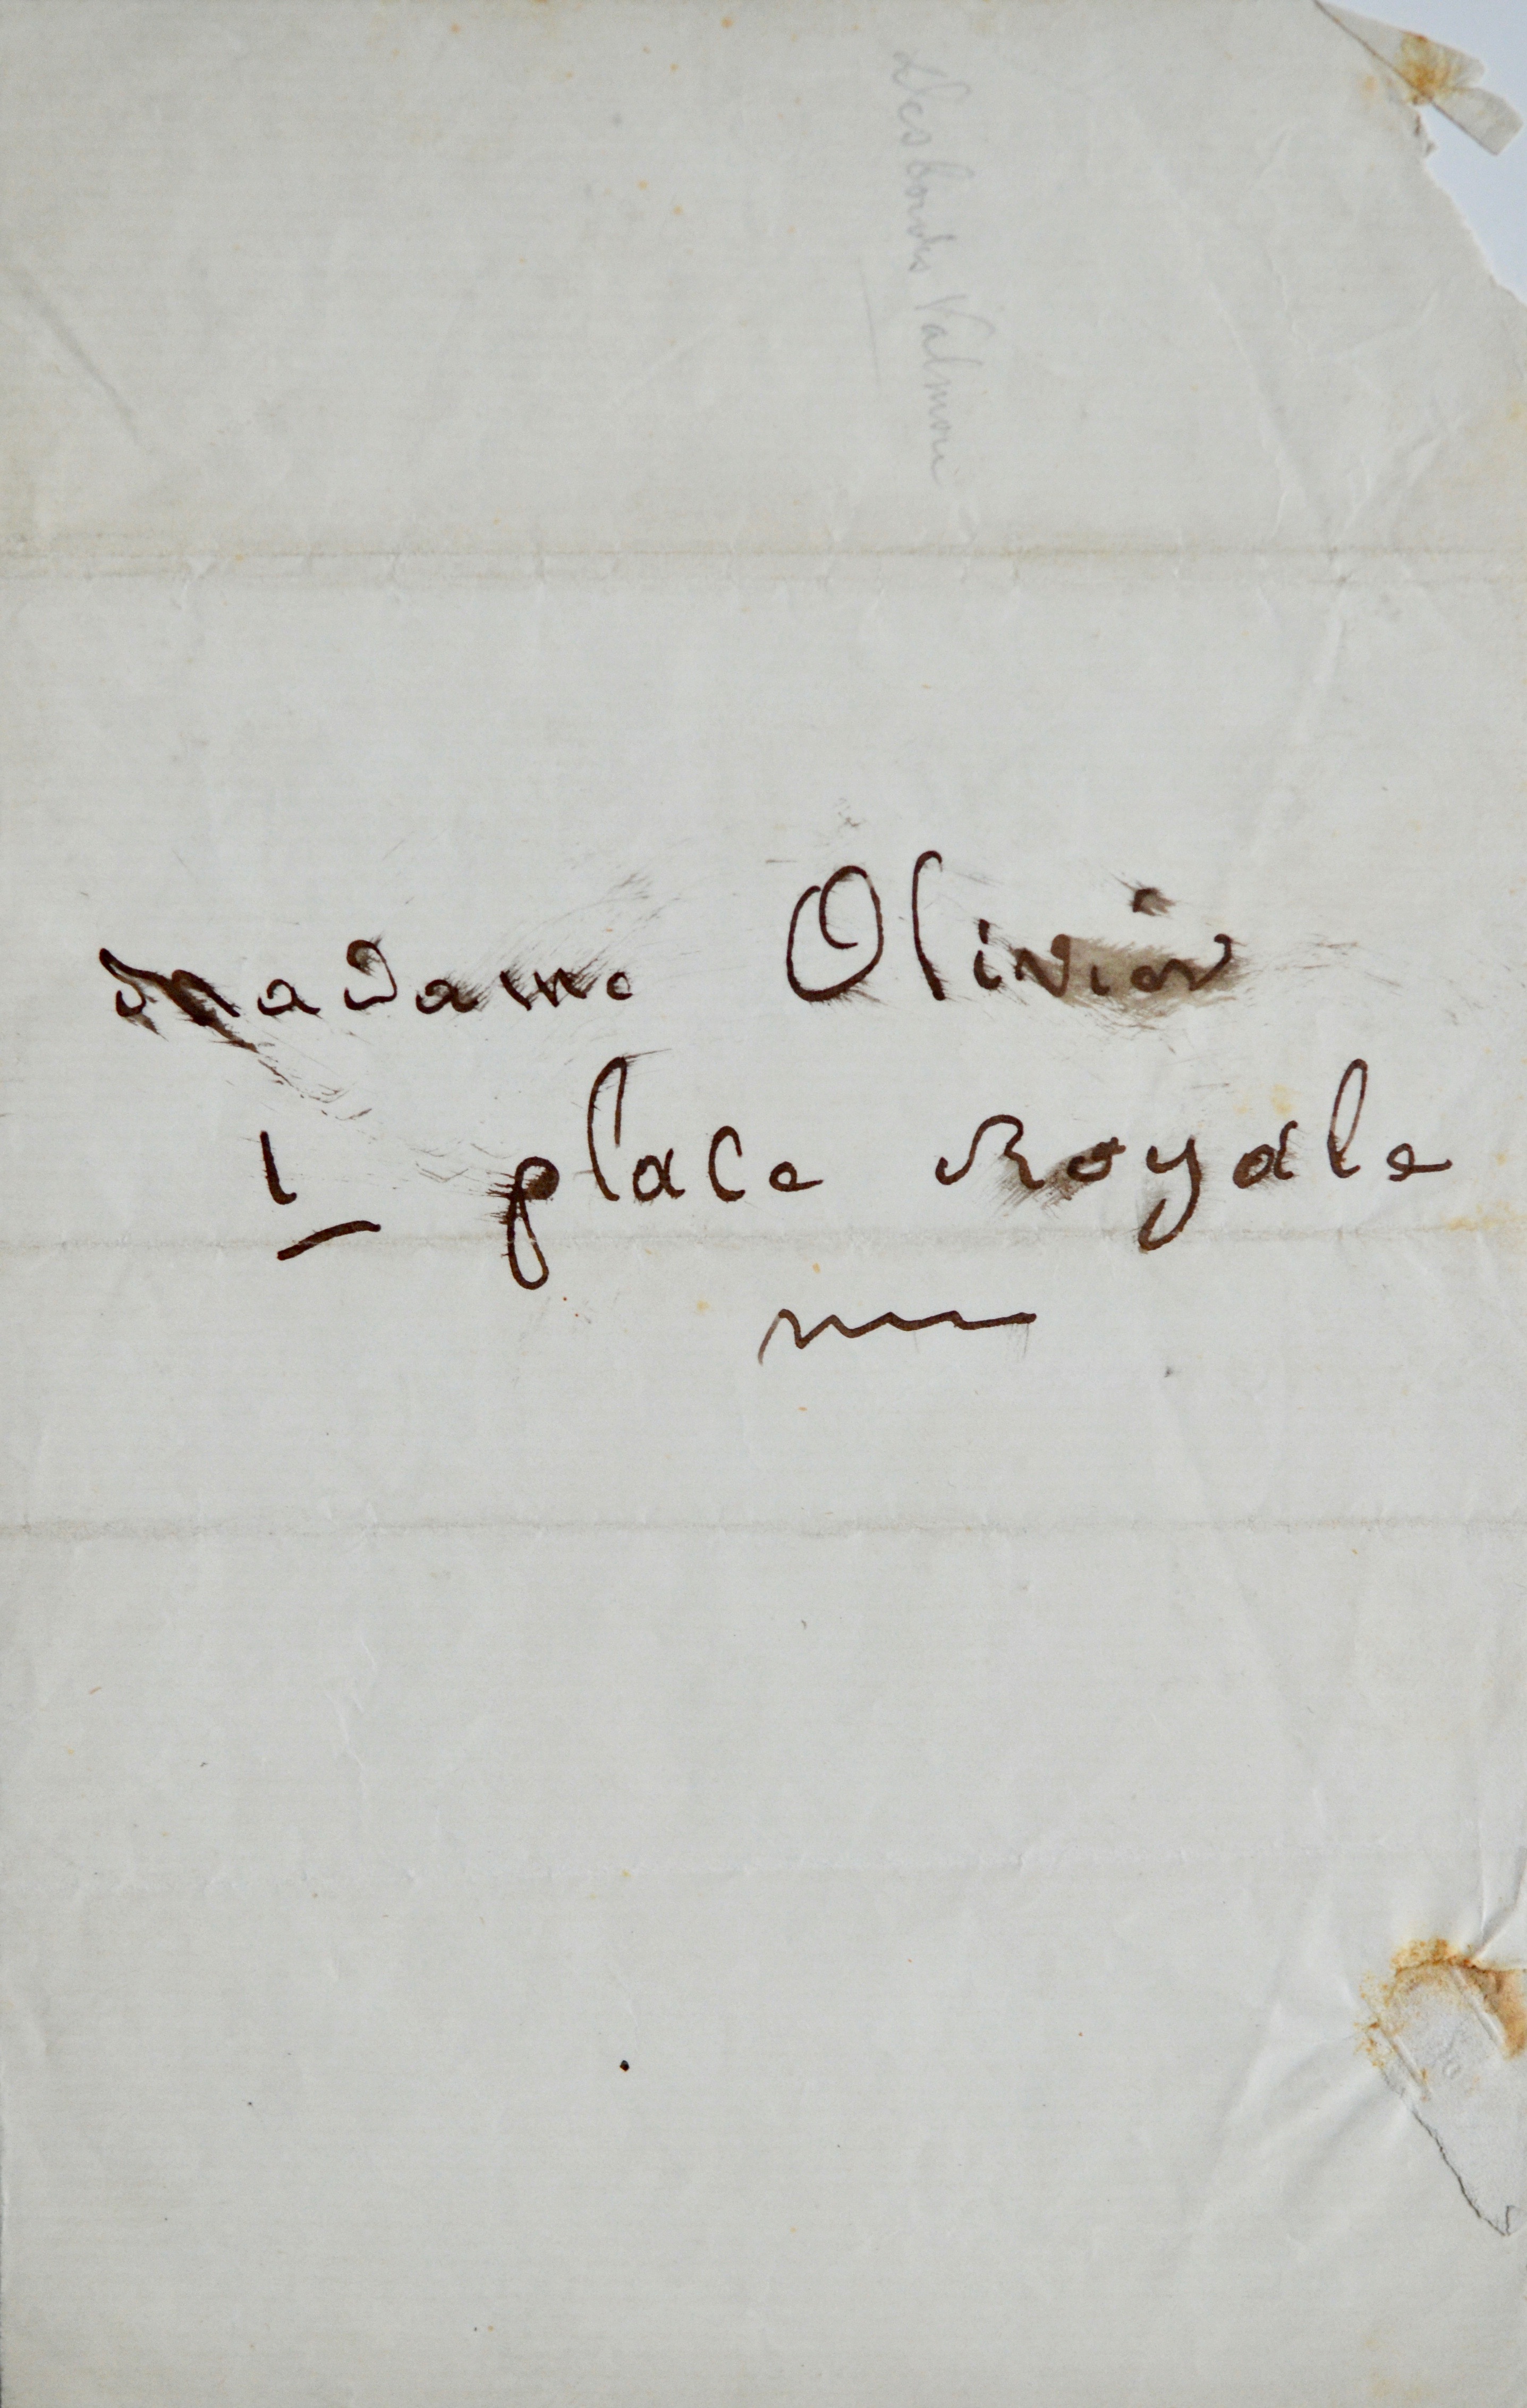 Desbordes Valmore
Madame Olivier
1 place Royale